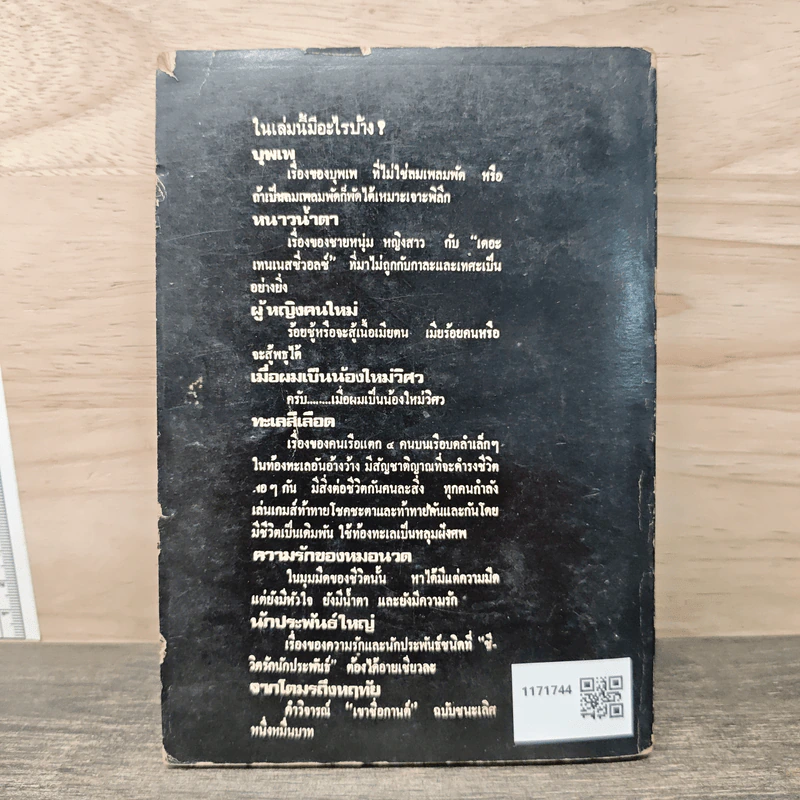 ในเล่มนี้มีอะไรบ้าง ?
บุพเพ
เรื่องของบุพเพ ที่ไม่ใช่ลมเพลมพัด หรือ
ถ้าเป็นลมเพลมพัดก็พัดได้เหมาะเจาะพิลึก
หนาวน้ำตา
เรื่องของชายหนุ่ม หญิงสาว กับ “เดอะ
เทนเนสซี่วอลซ์” ที่มาไม่ถูกกับกาละและเทศะเป็น
อย่างยิ่ง
ผู้หญิงคนใหม่
ร้อยชู้หรือจะสู้เนื้อเมียตน เมียร้อยคนหรือ
จะสู้พธูได้
เมื่อผมเป็นน้องใหม่วิศว
ครับ........เมื่อผมเป็นน้องใหม่วิศว
ทะเลสีเลือด
เรื่องของคนเรือแตก ๔ คนบนเรือบดลำเล็กๆ
ในท้องทะเลอันอ้างว้าง มีสัญชาติญาณที่จะดำรงชีวิต
ๆ กัน มีสิ่งต่อชีวิตกันคนละสิ่ง ทุกคนกำลัง
เล่นเกมส์ท้าทายโชคชะตาและท้าทายกันและกันโดย
มีชีวิตเป็นเดิมพัน ใช้ท้องทะเลเป็นหลุมฝังศพ
ความรักของหมอนวด
ในมุมมืดของชีวิตนั้น หาได้มีแต่ความมืด
แต่ยังมีหัวใจ ยังมีน้ำตา และยังมีความรัก
นักประพันธ์ใหญ่
เรื่องของความรักและนักประพันธ์ชนิดที่ “ชี-
วิตรักนักประพันธ์” ต้องได้อายเชียวละ
จากโตมรถึงหฤทัย
คำวิจารณ์ “เขาชื่อกานต์” ฉบับชนะเลิศ
หนึ่งหมื่นบาท
1171744